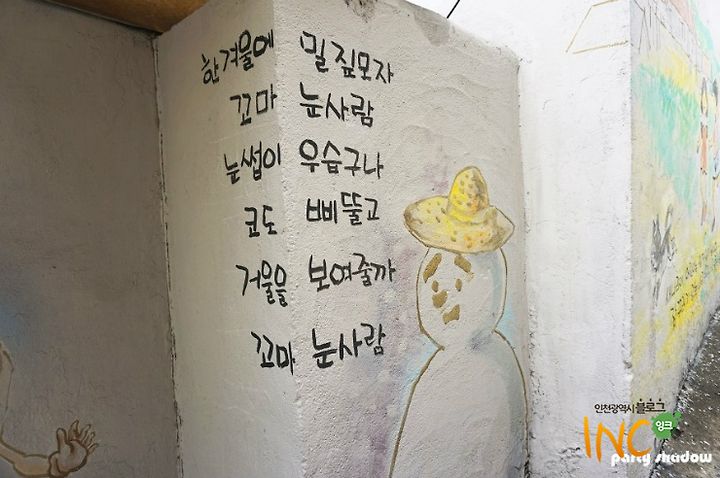 한겨울에 밀짚모자
꼬마 눈사람
눈썹이 우습구나
코도 삐뚤고
거울을 보여줄까
꼬마 눈사람
인천광역시 블로그
INC 잉크
party shadow